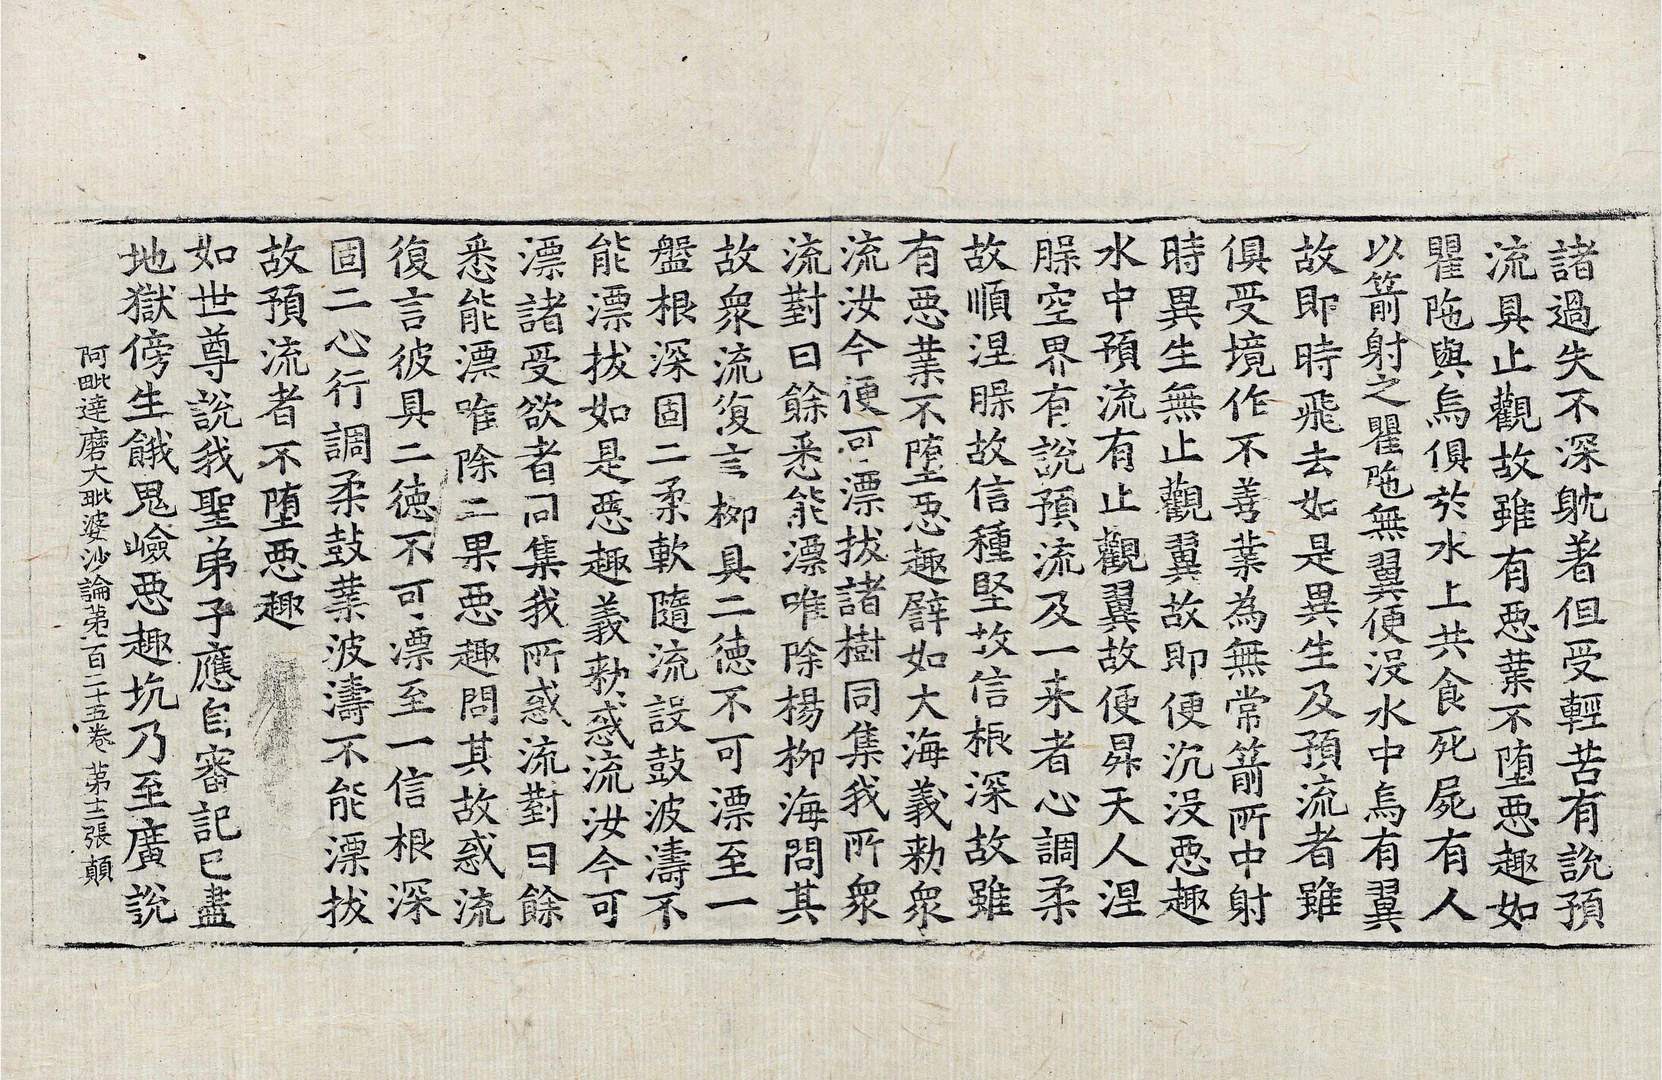 諸過失不深躭著但受輕苦有說預
流具止觀故雖有惡業不墮惡趣如
瞿陁與烏俱於水上共食死屍有人
以箭射之瞿陁無翼便沒水中烏有翼
故即時飛去如是異生及預流者雖
俱受境作不善業為無常箭所中射
時異生無止觀翼故即便沉沒惡趣
水中預流有止觀翼故便昇天人涅
槃空界有說預流及一来者心調柔
故順涅槃故信種堅故信根深故雖
有惡業不墮惡趣譬如大海義勑衆
流汝今便可漂拔諸樹同集我所衆
流對曰餘悉能漂唯除楊柳海問其
故衆流復言柳具二德不可漂至一
盤根深固二柔軟隨流設鼓波濤不
能漂拔如是惡趣義勑惑流汝今可
漂諸受欲者同集我所惑流對曰餘
悉能漂唯除二果惡趣問其故惑流
復言彼具二德不可漂至一信根深
固二心行調柔鼓業波濤不能漂拔
故預流者不墮惡趣
如世尊說我聖弟子應自審記已盡
地獄傍生餓鬼嶮惡趣坑乃至廣說
阿毗達磨大毗婆沙論第一百二十五卷 第十三張 顛